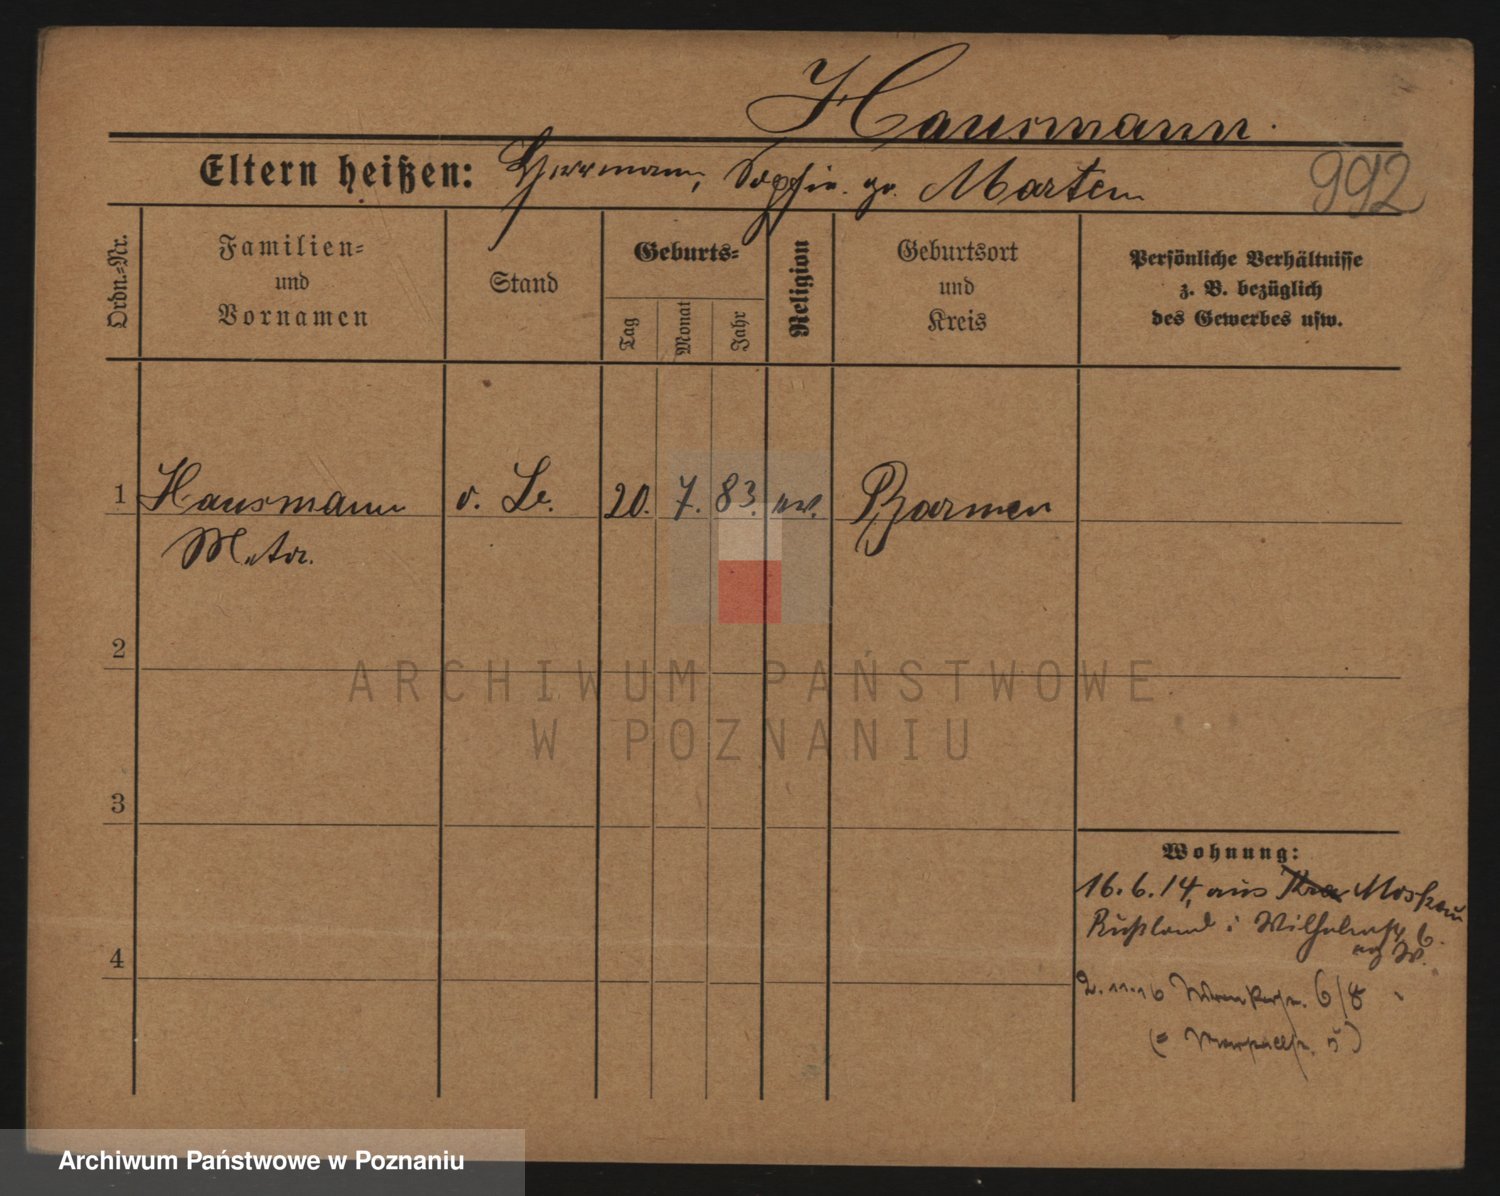 Hausmann.
Eltern heißen: Herrmann, Sophie. ge. Marten
992
Ordn.=Nr.
Familien=
und
Vornamen
Stand
Geburts=
Tag
Monat
Jahr
Religion
Geburtsort
und
Kreis
Persönliche Verhältnisse
z. B. bezüglich
des Gewerbes usw.
1 Hausmann
Meta.
20. 7. 83. ev. Barmen
2
3
4
Wohnung:
16.6.14, aus Moskau
Rußland i Wilhelmstr 6.
2.11.16 6/8
ARCHIWUM PAŃSTWOWE
W POZNANIU
Archiwum Państwowe w Poznaniu